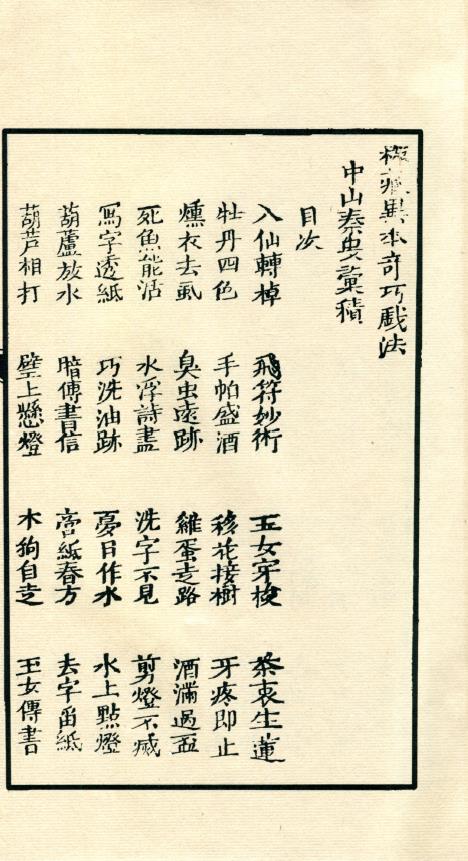 藏異本奇巧戲法
中山秦曳彙積
目次
八仙轉棹 飛符妙術 玉女穿梭 生蓮
牡丹四色 手帕盛酒 移花接樹 牙疼即止
燻衣去虱 臭虫遠跡 雞蛋走路 酒滿過盃
死魚能活 水浮詩畫 洗字不見 剪燈不滅
寫字透紙 巧洗油跡 夏日作水 水上點燈
葫蘆放水 暗傳書信 紙春方 去字留紙
葫芦相打 壁上懸燈 木狗自走 玉女傳書